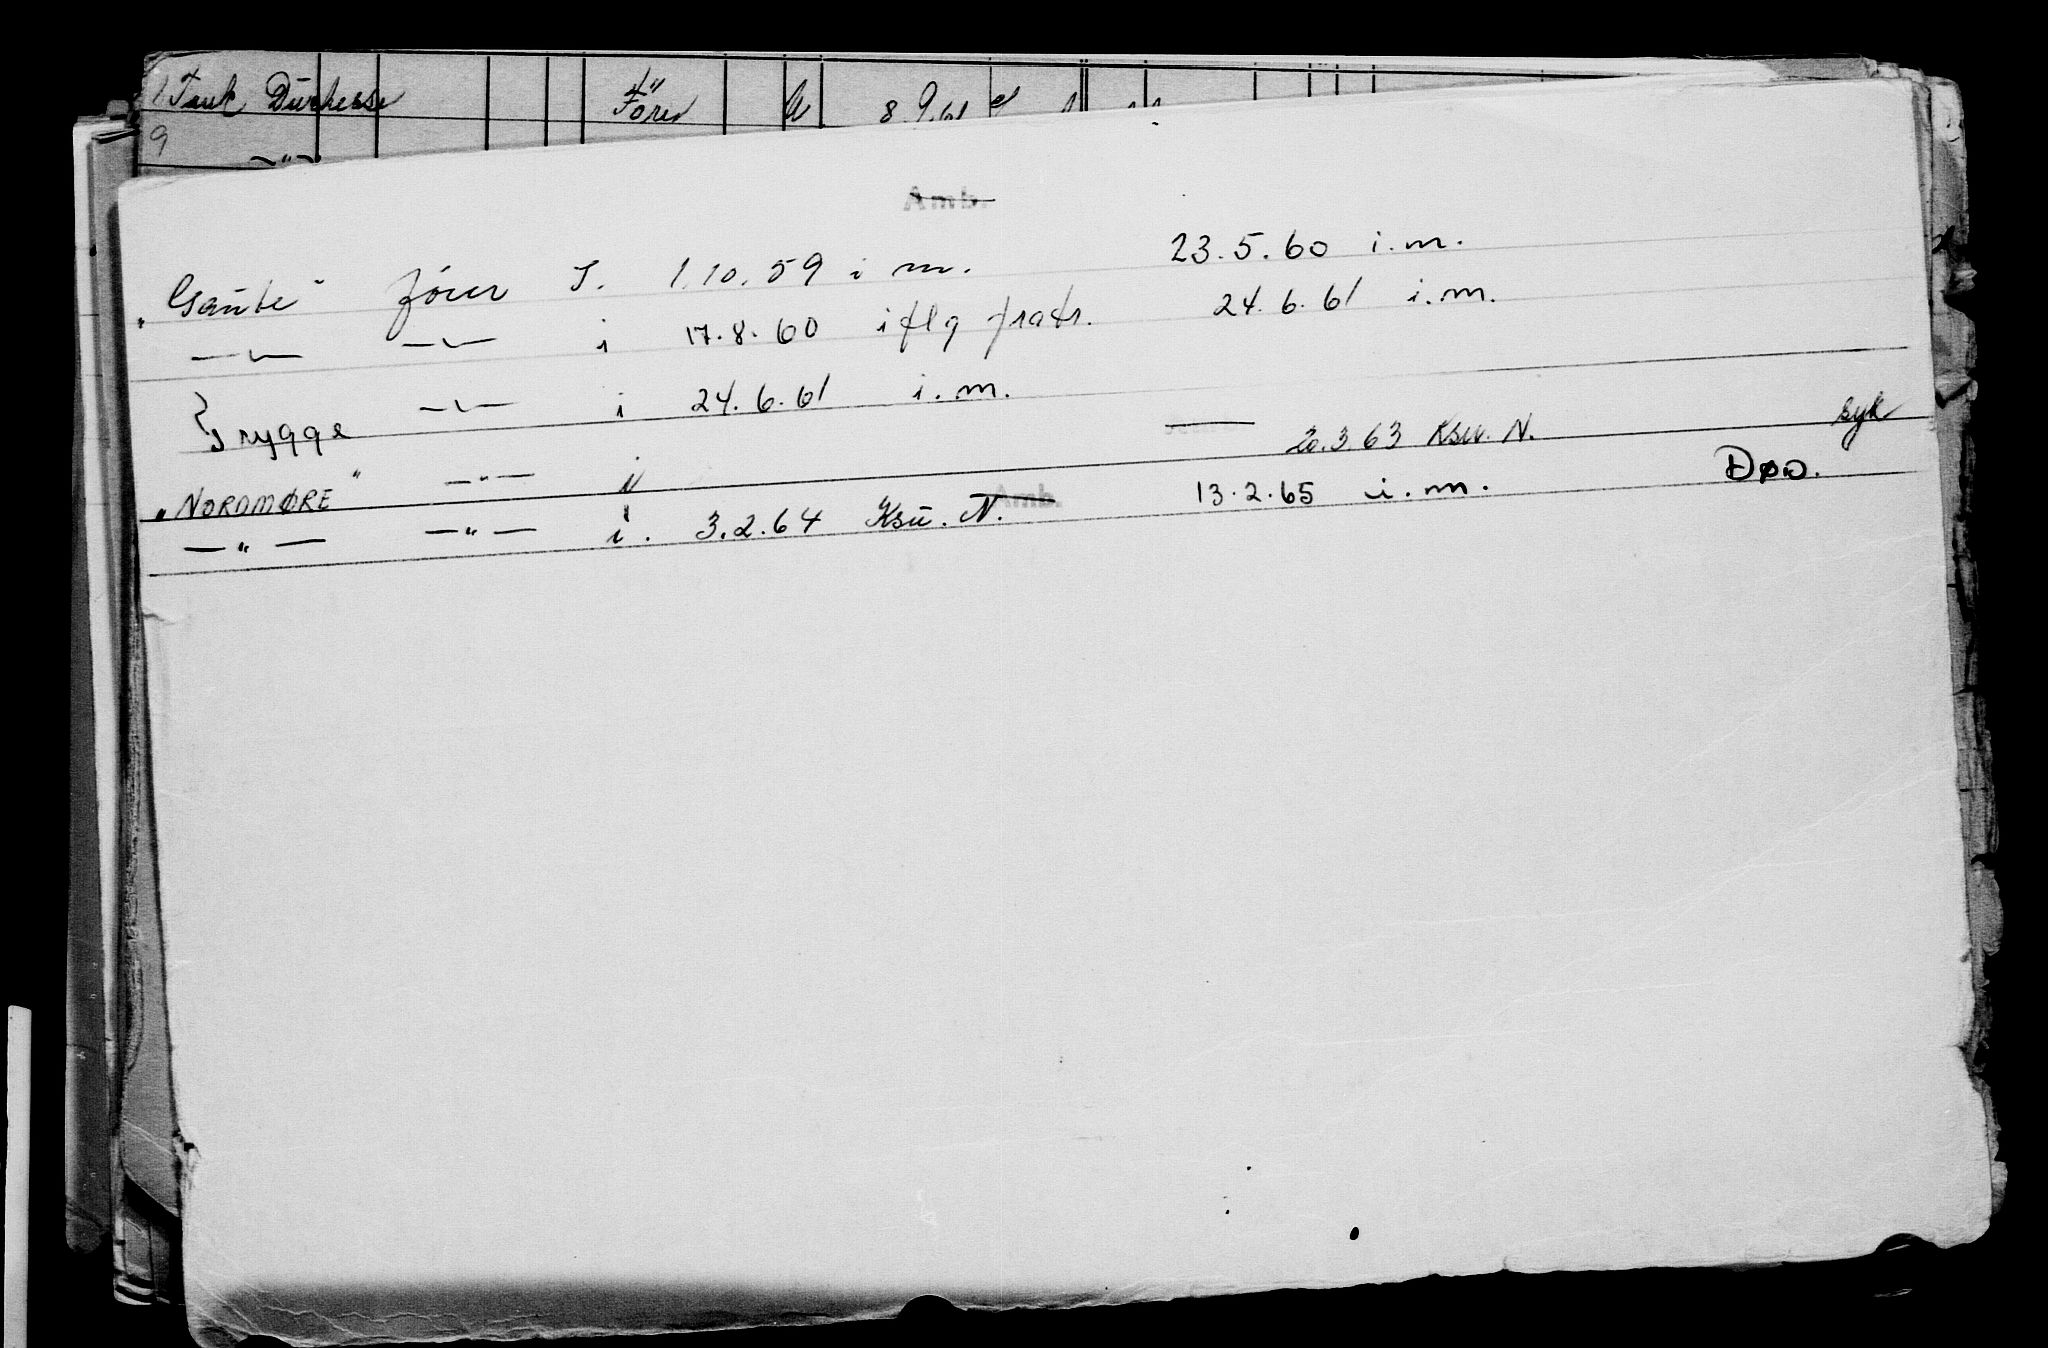 Düchesse Förer 8.9.61
9 —"—
Amb.
"Gaute" fører I. 1.10.59 i m. 23.5.60 i.m.
—"— —"— i 17.8.60 iflg fratr. 24.6.61 i.m.
Trygge —"— i 24.6.61 i.m.
20.3.63 Ksu. N. syk
"NORDMØRE" —"— i/
—"— —"— i. 3.2.64 Ksu. N. Amb. 13.2.65 i.m. DØD.